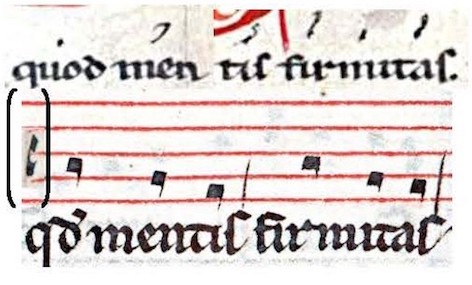 quod men tis firmitas.
qđ mentis firmitas